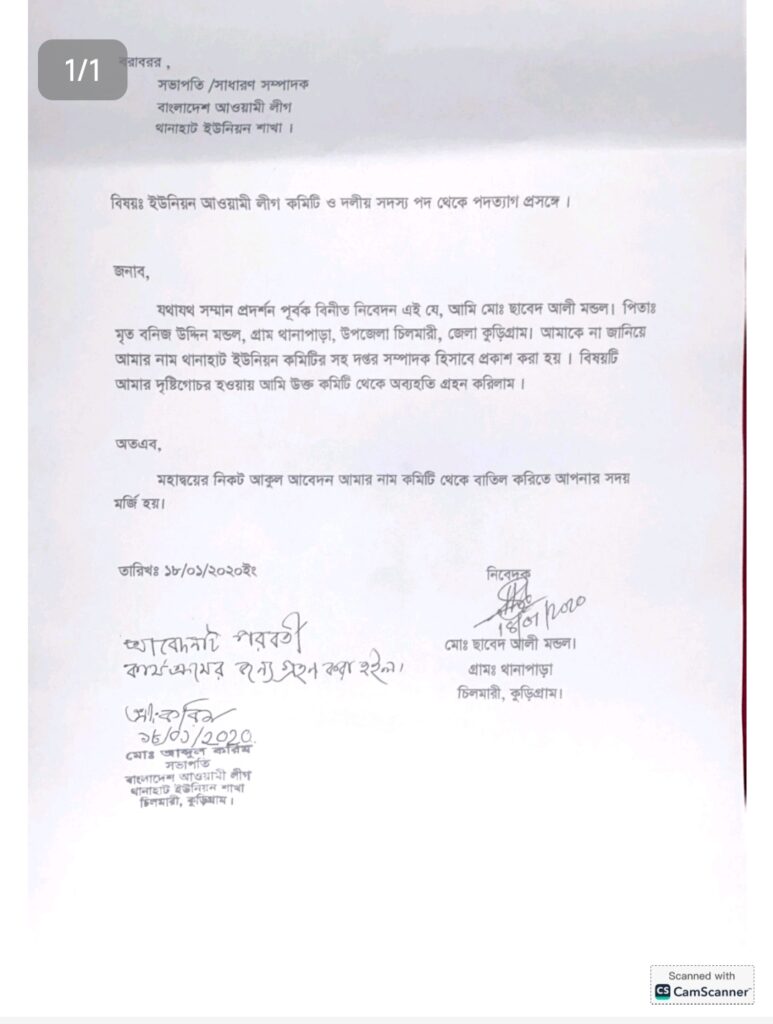 1/1
বরাবরর ,
সভাপতি /সাধারণ সম্পাদক
বাংলাদেশ আওয়ামী লীগ
থানাহাট ইউনিয়ন শাখা ।
বিষয়ঃ ইউনিয়ন আওয়ামী লীগ কমিটি ও দলীয় সদস্য পদ থেকে পদত্যাগ প্রসঙ্গে ।
জনাব,
যথাযথ সম্মান প্রদর্শন পূর্বক বিনীত নিবেদন এই যে, আমি মোঃ ছাবেদ আলী মন্ডল। পিতাঃ
মৃত বনিজ উদ্দিন মন্ডল, গ্রাম থানাপাড়া, উপজেলা চিলমারী, জেলা কুড়িগ্রাম। আমাকে না জানিয়ে
আমার নাম থানাহাট ইউনিয়ন কমিটির সহ দপ্তর সম্পাদক হিসাবে প্রকাশ করা হয় । বিষয়টি
আমার দৃষ্টিগোচর হওয়ায় আমি উক্ত কমিটি থেকে অব্যহতি গ্রহন করিলাম ।
অতএব,
মহাদ্বয়ের নিকট আকুল আবেদন আমার নাম কমিটি থেকে বাতিল করিতে আপনার সদয়
মর্জি হয়।
তারিখঃ ১৮/০১/২০২০ইং
নিবেদক
18/01/2020
মোঃ ছাবেদ আলী মন্ডল।
গ্রামঃ থানাপাড়া
চিলমারী, কুড়িগ্রাম।
আবেদনটি পরবর্তী
কার্যক্রমের জন্য গ্রহন করা হইল।
আঃ করিম
১৮/০১/২০২০
মোঃ আব্দুল করিম
সভাপতি
বাংলাদেশ আওয়ামী লীগ
থানাহাট ইউনিয়ন শাখা
চিলমারী, কুড়িগ্রাম ।
Scanned with
CS CamScanner